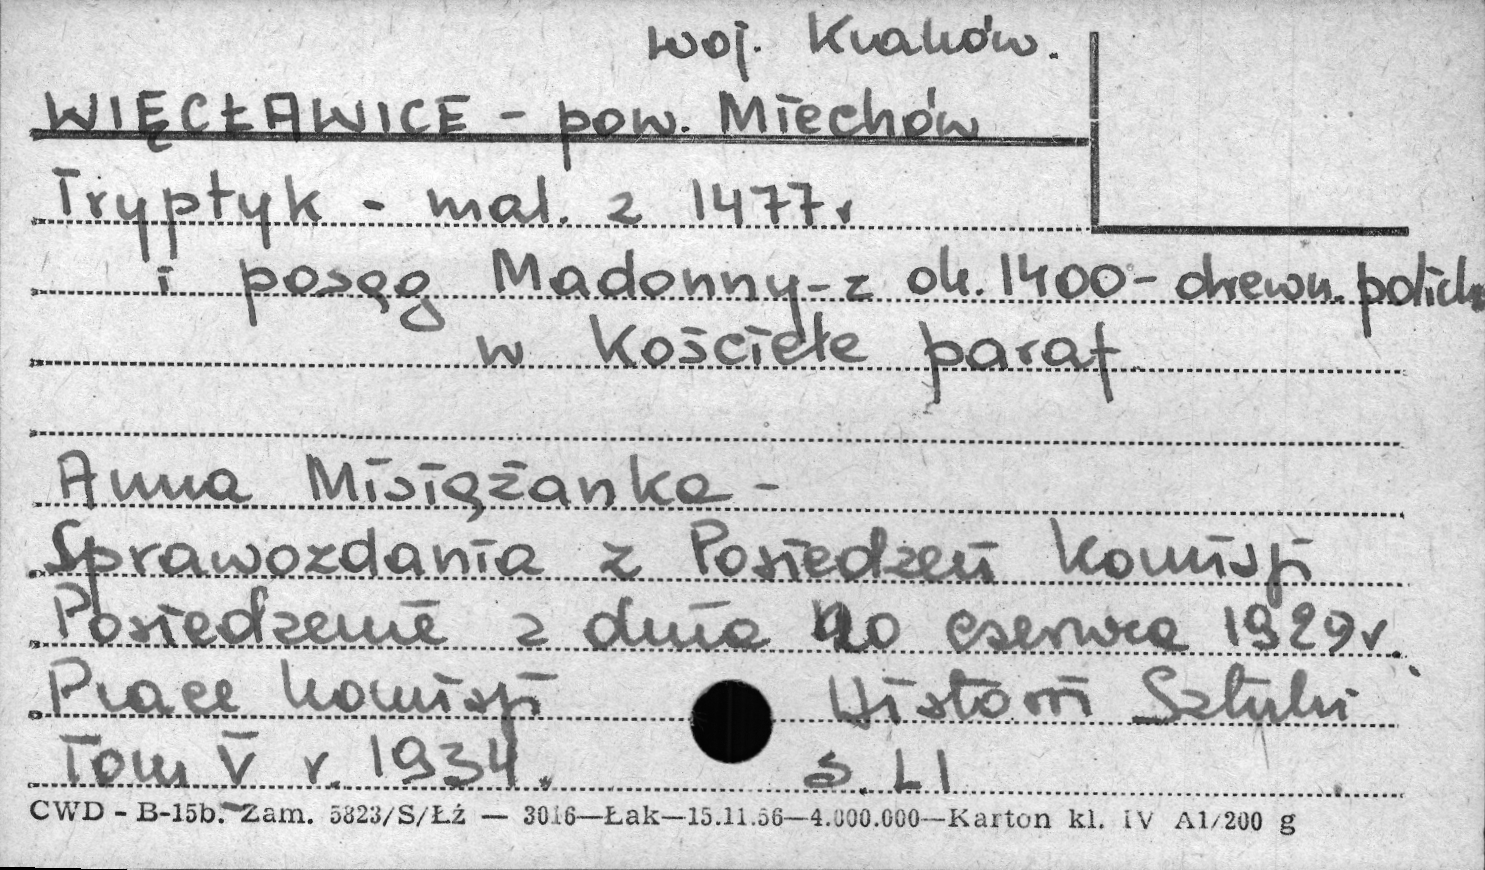 woj. Kraków.
WIĘCŁAWICE - pow. Miechów
Tryptyk - mal. z 1477 r
i posąg Madonny - z ok. 1400 - drewn. polich
w Kościele paraf.
Anna Misiążanka -
Sprawozdania z Posiedzeń Komisji
Posiedzenie z dnia 20 czerwca 1929 r.
Prace Komisji Historii Sztuki
Tom V r. 1934. s. LI
CWD - B-15b. Zam. 5823/S/Łź — 3016—Łak—15.11.56—4.000.000—Karton kl. IV A1/200 g